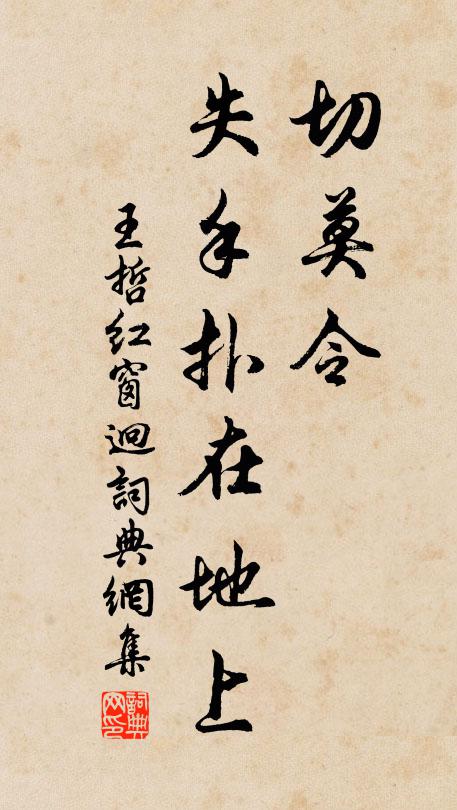 切莫令
失手扑在地上
王哲红窗迥詞典網集
詞典网印